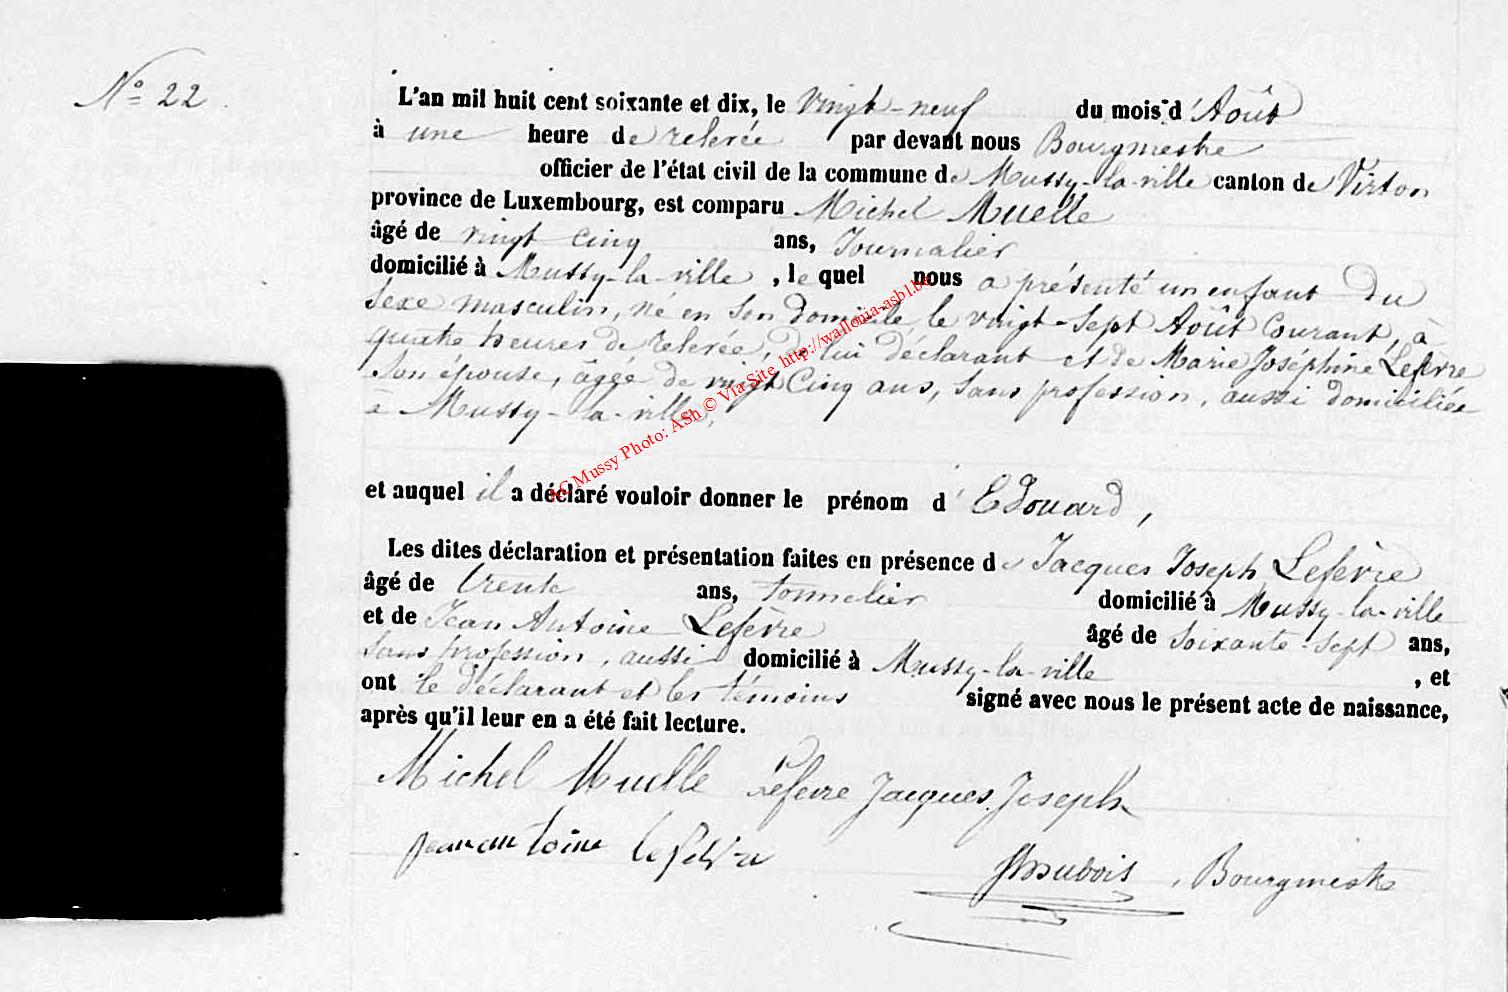 N° 22
L'an mil huit cent soixante et dix, le vingt-neuf du mois d'Août
à une heure de relevée par devant nous Bourgmestre
officier de l'état civil de la commune de Mussy-la-ville canton de Virton
province de Luxembourg, est comparu Michel Muelle
âgé de vingt cinq ans, Journalier
domicilié à Mussy-la-ville, le quel nous a présenté un enfant du
sexe masculin, né en son domicile, le vingt-sept Août Courant, à
quatre heures de relevée, de lui déclarant et de Marie Joséphine Lefèvre
Son épouse, âgée de vingt Cinq ans, sans profession, aussi domiciliée
à Mussy-la-ville,
et auquel il a déclaré vouloir donner le prénom d'Edouard,
Les dites déclaration et présentation faites en présence de Jacques Joseph Lefèvre
âgé de trente ans, tonnelier domicilié à Mussy-la-ville
et de Jean Antoine Lefèvre âgé de soixante-sept ans,
sans profession, aussi domicilié à Mussy-la-ville, et
ont le déclarant et les témoins signé avec nous le présent acte de naissance,
après qu'il leur en a été fait lecture.
Michel Muelle Lefevre Jacques Joseph
jean antoine lefevre
Dubois, Bourgmestre
AC Mussy Photo: ASh © Via Site http://wallonia-asbl.be